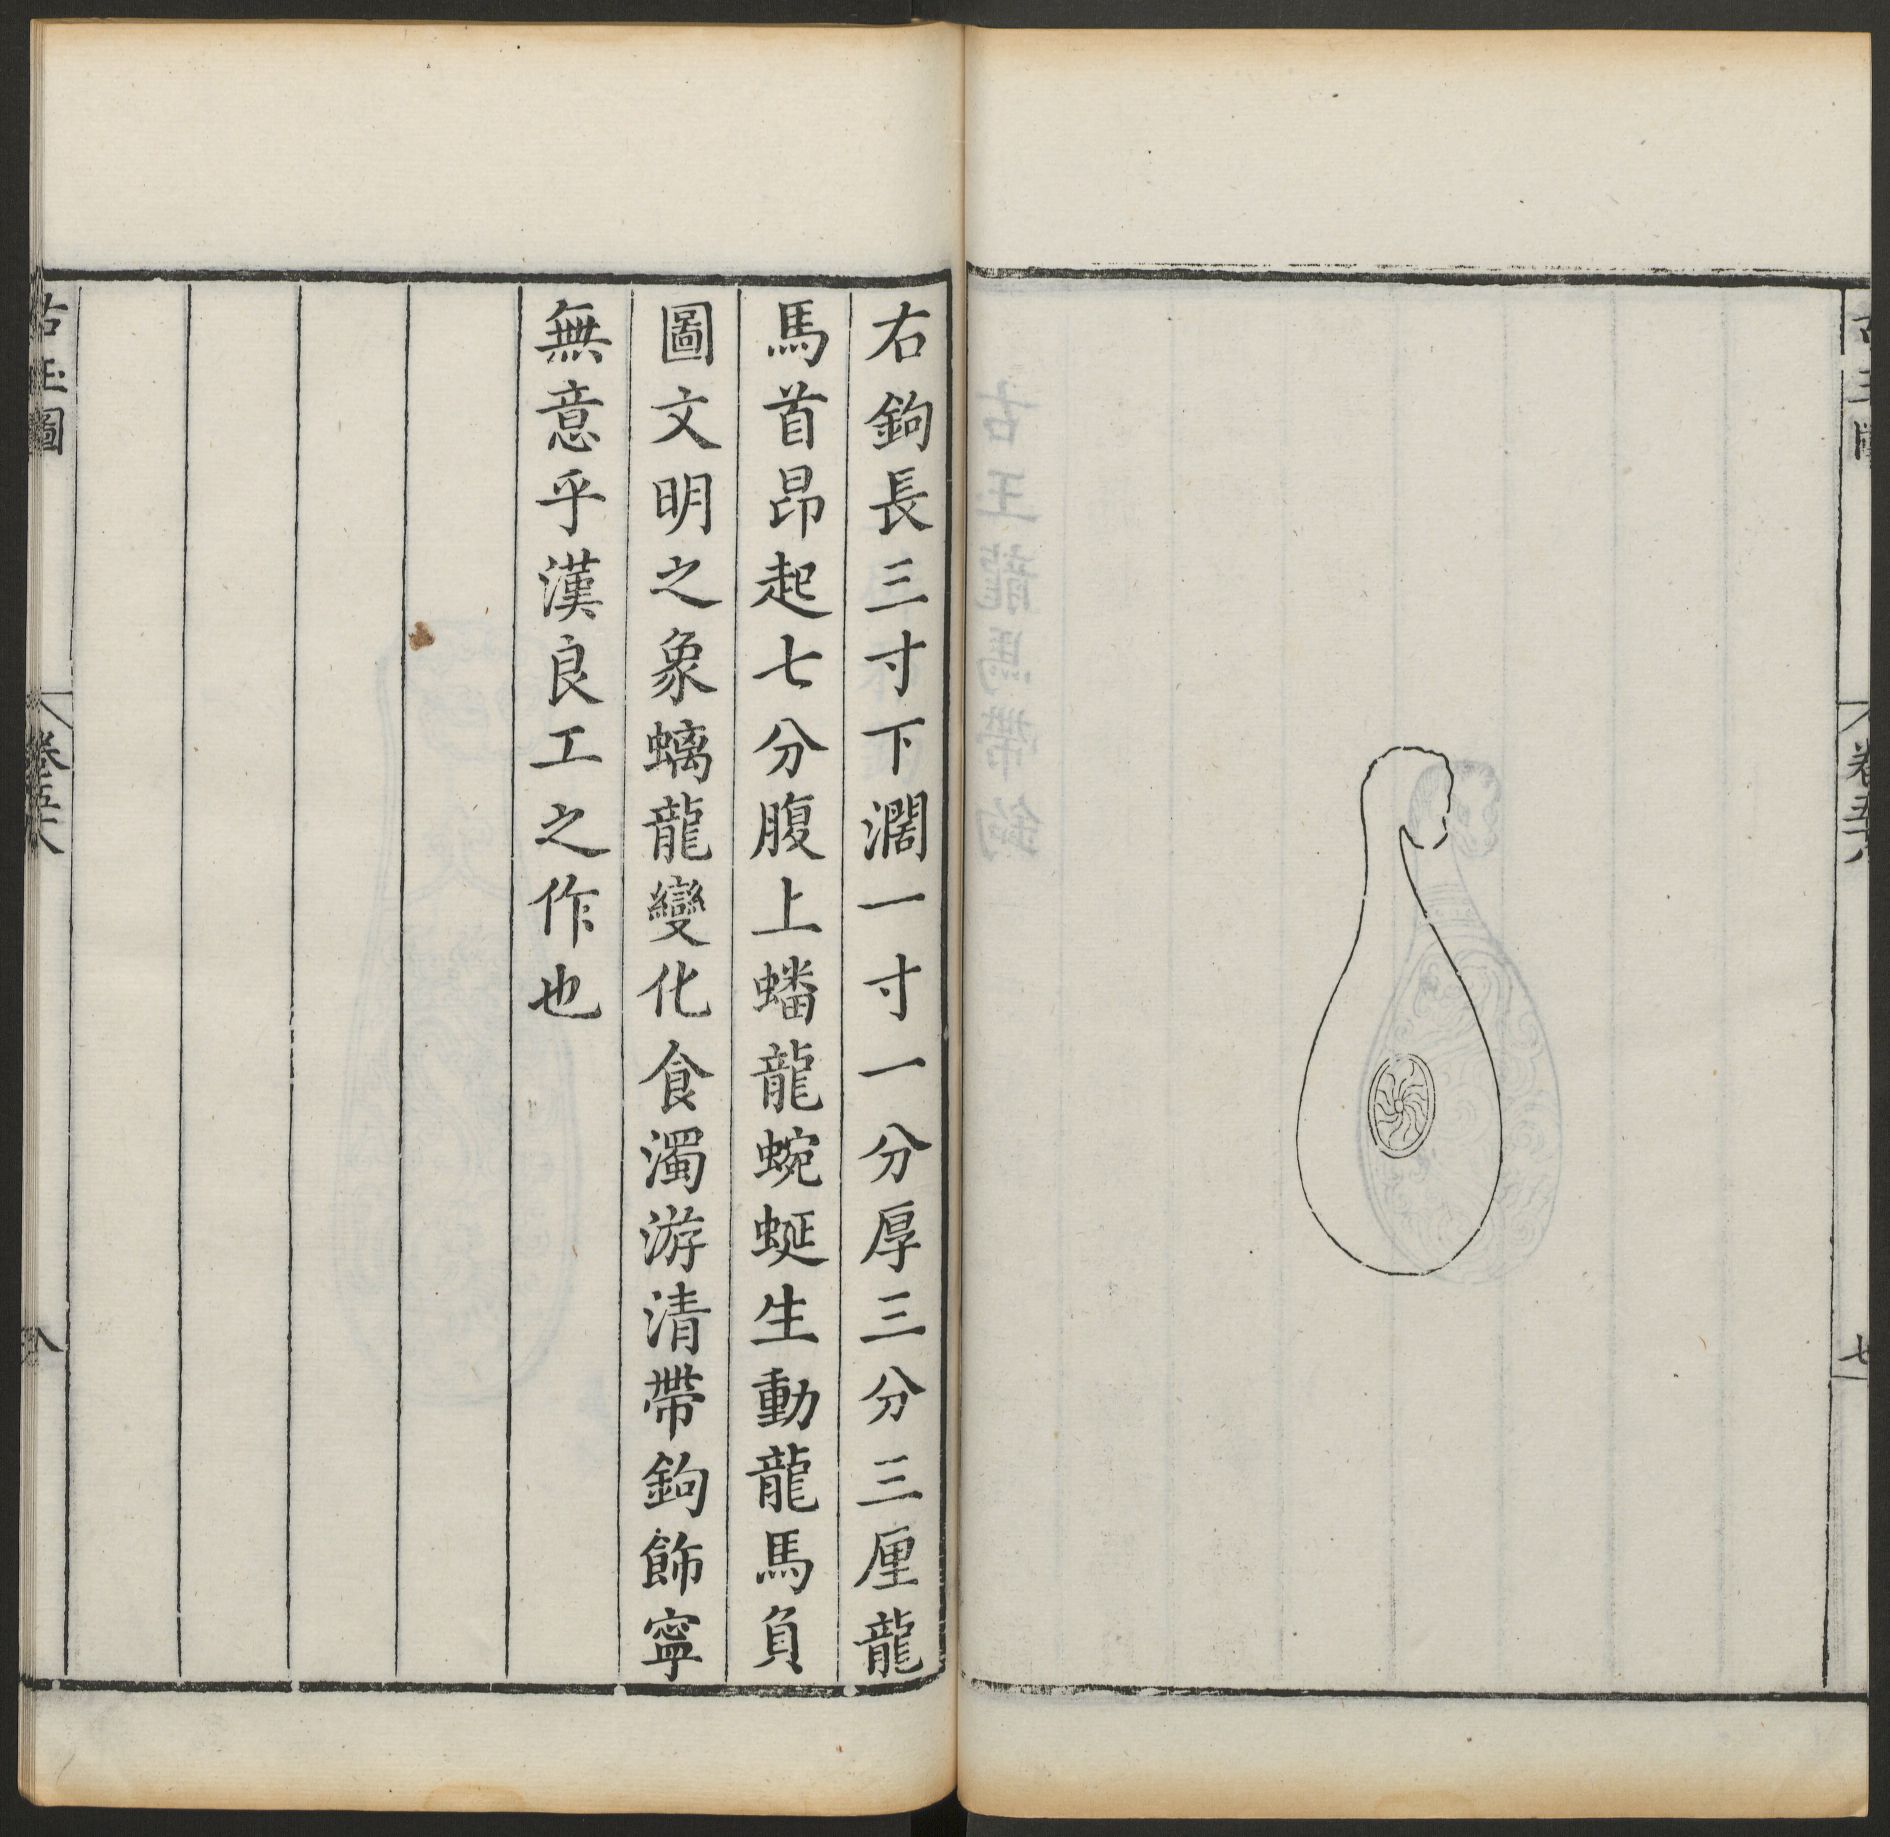 右鉤長三寸下濶一寸一分厚三分三厘龍
馬首昂起七分腹上蟠龍蜿蜒生動龍馬負
圖文明之象螭龍變化食濁游清帶鉤飾寧
無意乎漢良工之作也
古玉圖
八
古玉圖
七